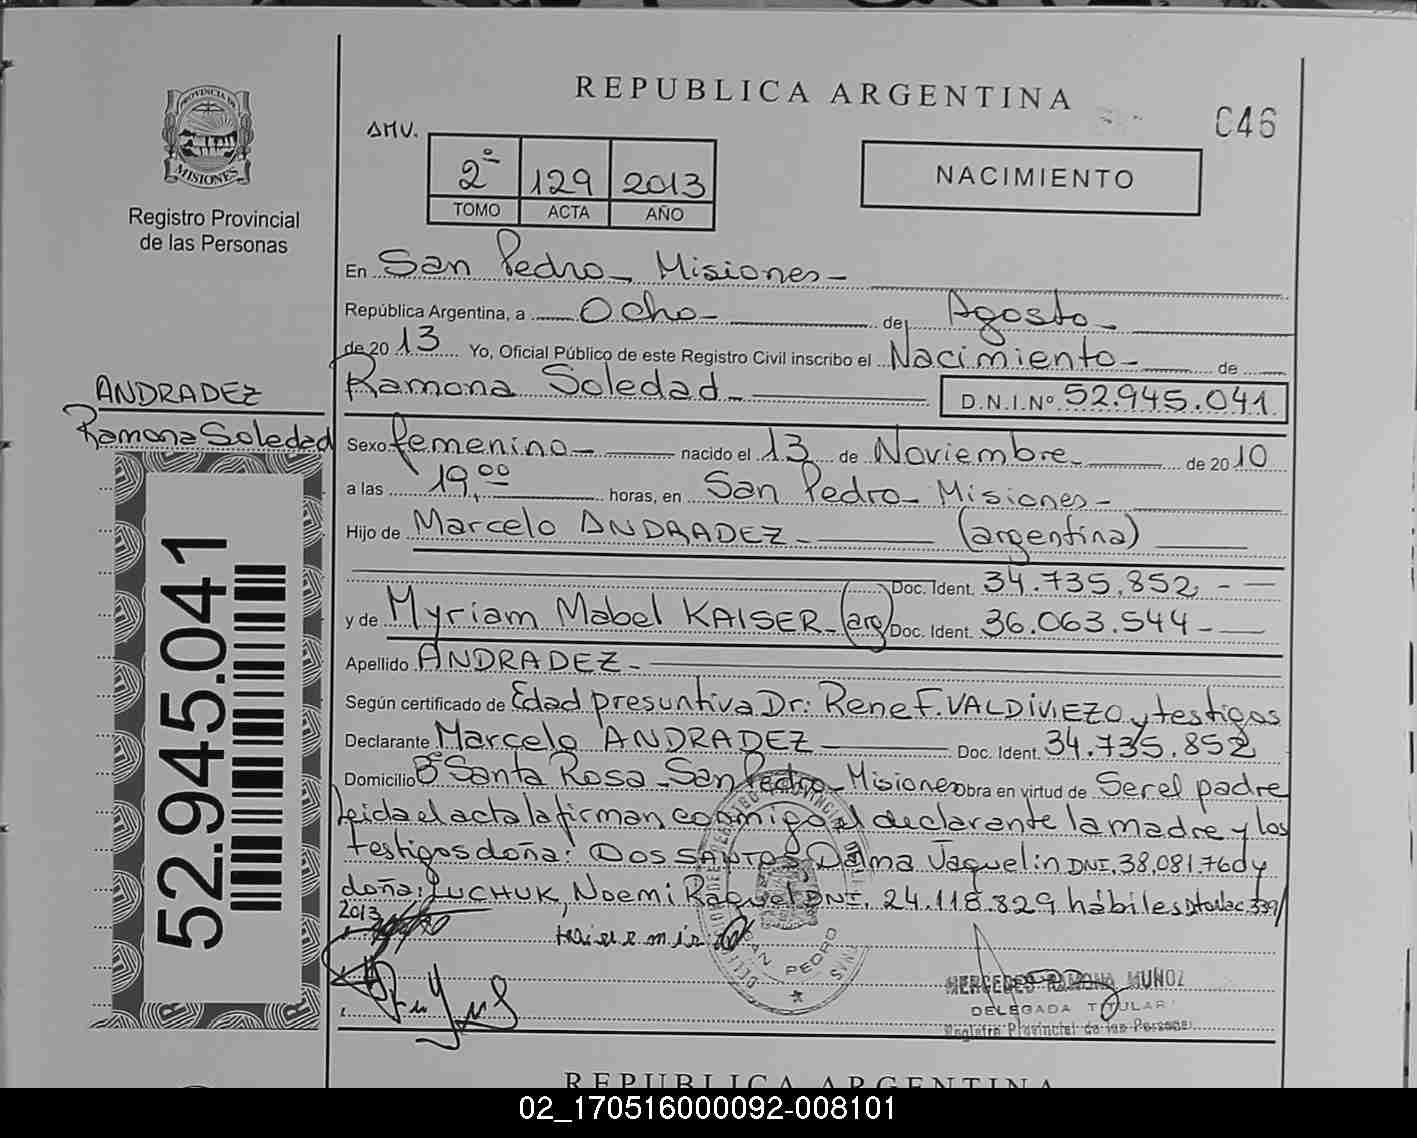 REPUBLICA ARGENTINA
C46
AMV.
2º 129 2013
TOMO ACTA AÑO
NACIMIENTO
PROVINCIA DE
MISIONES
Registro Provincial
de las Personas
En San Pedro_ Misiones_
República Argentina, a Ocho_ de Agosto_
de 20 13 Yo, Oficial Público de este Registro Civil inscribo el Nacimiento_ de
Ramona Soledad_ D.N.I.Nº 52.945.041
ANDRADEZ
Ramona Soledad
Sexo femenino_ nacido el 13 de Noviembre_ de 2010
a las 19,00 horas, en San Pedro_ Misiones_
Hijo de Marcelo ANDRADEZ_ (argentina)
Doc. Ident. 34.735.852_
y de Myriam Mabel KAISER_ (arg) Doc. Ident. 36.063.544_
Apellido ANDRADEZ_
Según certificado de Edad presuntiva Dr: Rene F. VALDIVIEZO y testigos
Declarante Marcelo ANDRADEZ Doc. Ident. 34.735.852
Domicilio Bº Santa Rosa_ San Pedro_ Misiones obra en virtud de Ser el padre
leida el acta la firman conmigo el declarante la madre y los
testigos doña: DOS SANTOS, Dalma Jaquelin DNI. 38.081.760 y
doña: LUCHUK, Noemi Raquel DNI. 24.118.829 hábiles
2013
52.945.041
SAN PEDRO
MERCEDES RAMONA MUÑOZ
DELEGADA TITULAR
Registro Provincial de las Personas
REPUBLICA ARGENTINA
02_170516000092-008101